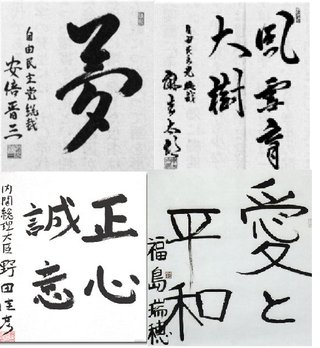 夢
自由民主党総裁
安倍晋三
風雪育
大樹
自由民主党総裁
麻生太郎
正心
誠意
内閣総理大臣 野田佳彦
愛と
平和
福島瑞穂